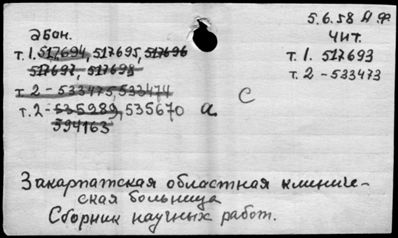 5.6.58 А.Ф
Абон.
т.1. 517694, 517695, 517696
517697, 517698
т 2 - 533475, 533474
т.2 - 535989, 535670 а
594163
Чит.
т. 1. 517693
т. 2 - 533473
С
Закарпатская областная клиниче-
ская больница
Сборник научных работ.